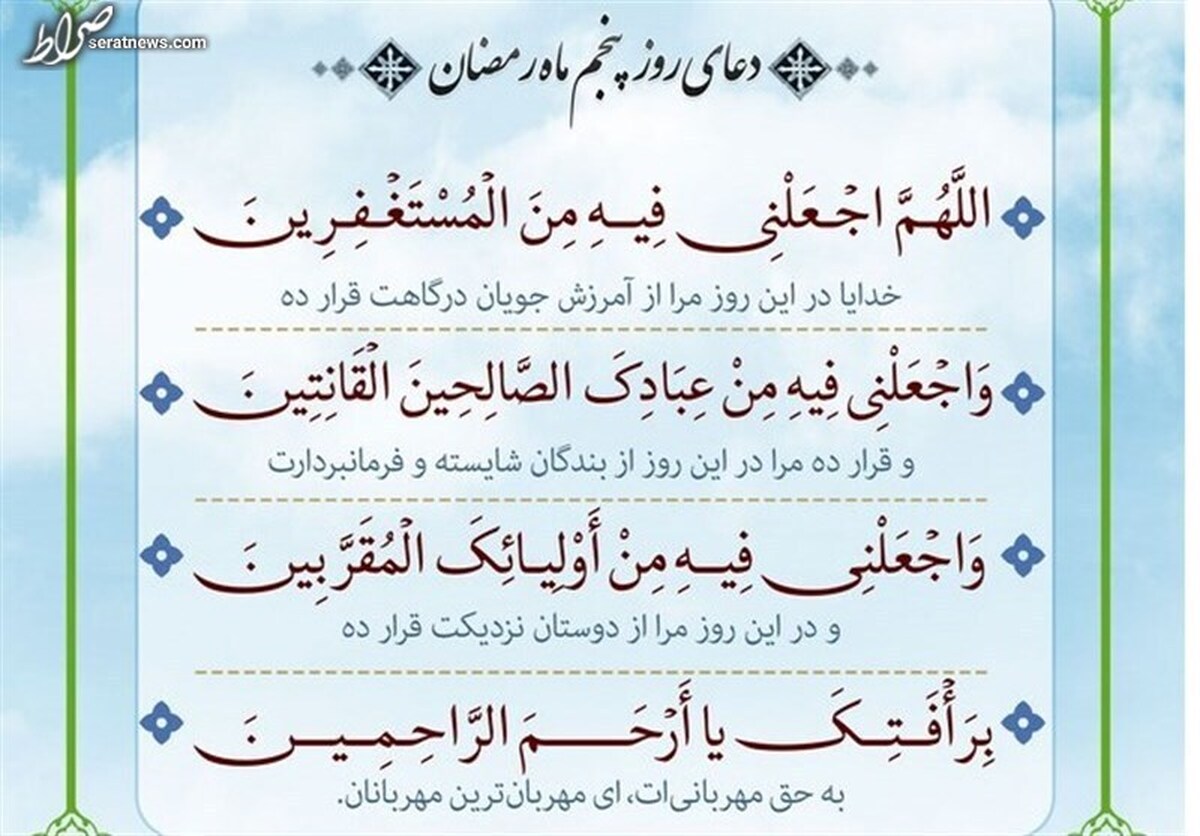 صراط
seratnews.com
دعای روز پنجم ماه رمضان
اللَّهُمَّ اجْعَلْنِی فِیهِ مِنَ الْمُسْتَغْفِرِینَ
خدایا در این روز مرا از آمرزش جویان درگاهت قرار ده
وَاجْعَلْنِی فِیهِ مِنْ عِبَادِکَ الصَّالِحِینَ الْقَانِتِینَ
و قرار ده مرا در این روز از بندگان شایسته و فرمانبردارت
وَاجْعَلْنِی فِیهِ مِنْ أَوْلِیائِکَ الْمُقَرَّبِینَ
و در این روز مرا از دوستان نزدیکت قرار ده
بِرَأْفَتِکَ یا أَرْحَمَ الرَّاحِمِینَ
به حق مهربانی‌ات، ای مهربان‌ترین مهربانان.